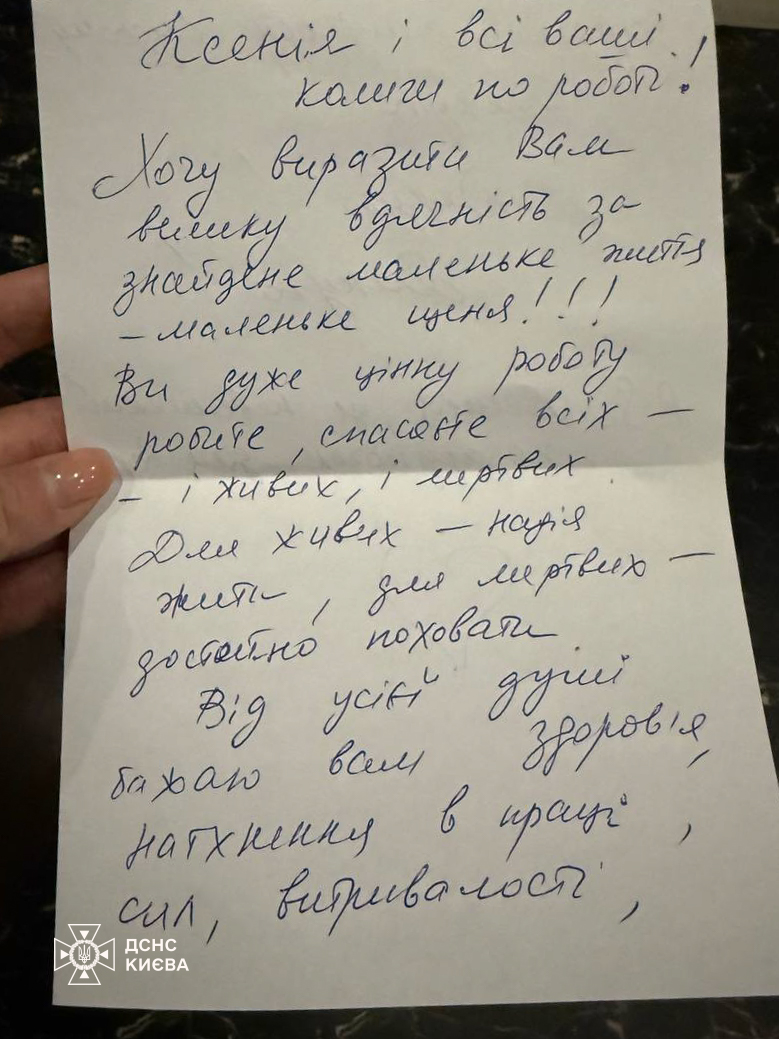 Ксенія і всі ваші
колиги по роботі!
Хочу виразити Вам
велику вдячність за
знайдене маленьке життя
– маленьке щеня!!!
Ви дуже цінну роботу
робите, спасаєте всіх –
– і живих, і мертвих.
Для живих – надія
жити, для мертвих –
достойно поховати
Від усієї душі
бажаю вам здоров'я,
натхнення в праці,
сил, витривалості,
ДСНС
КИЄВА